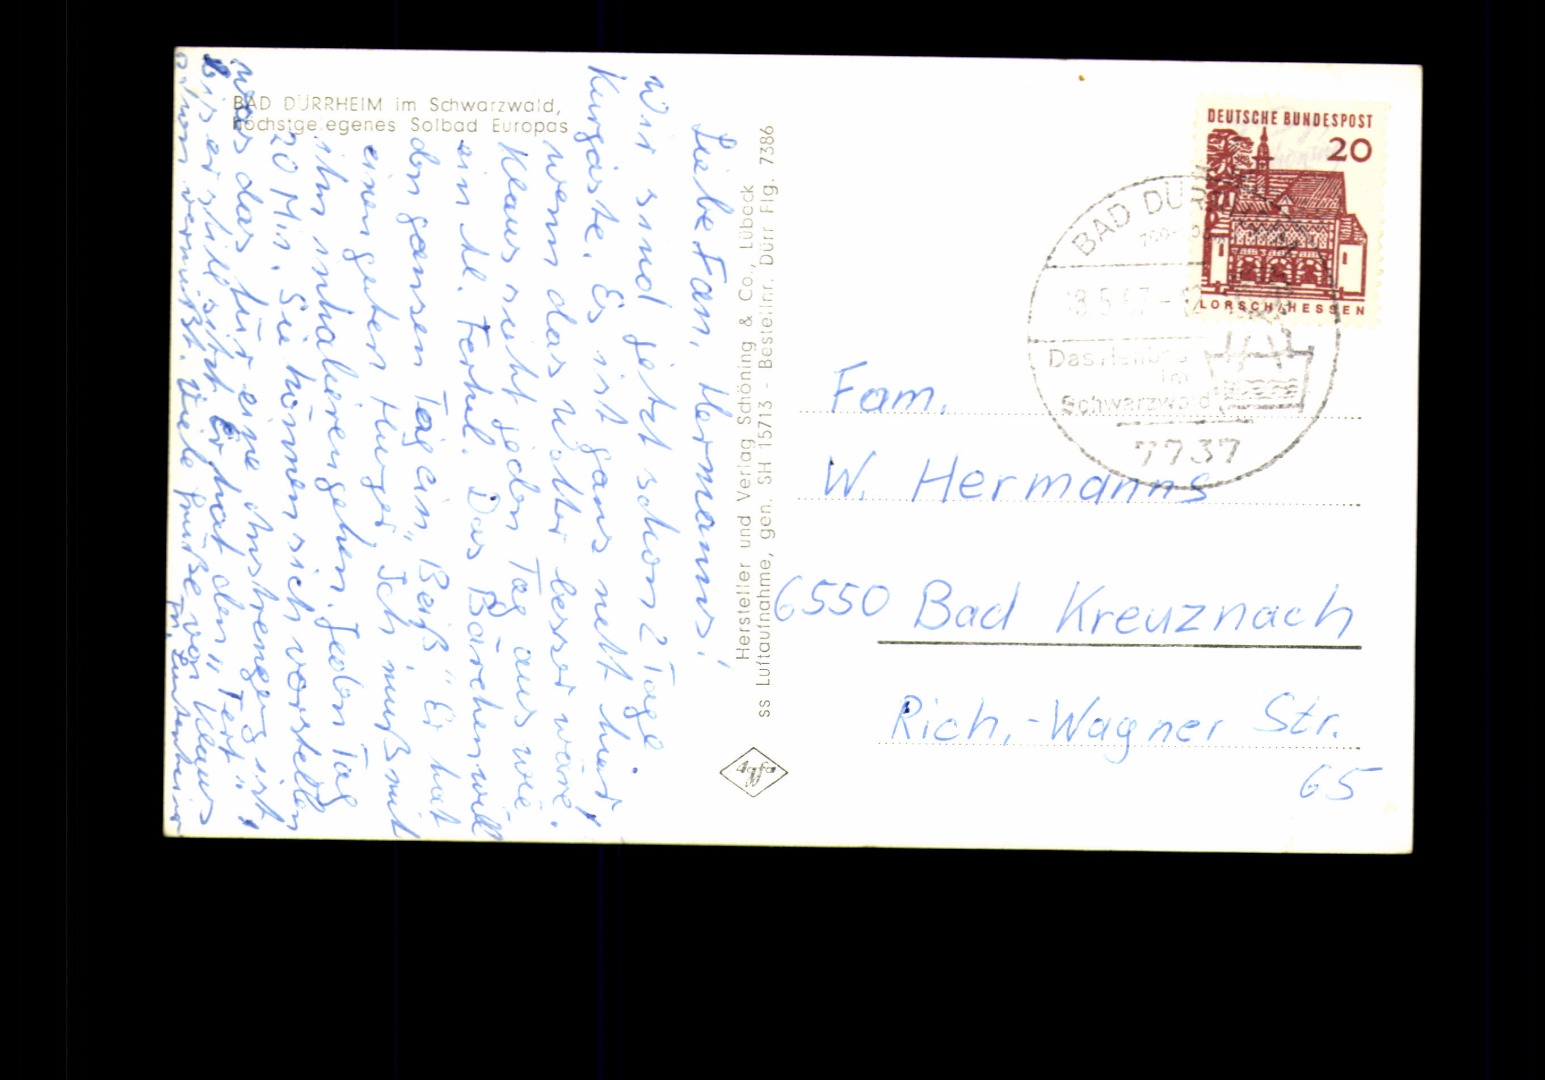 BAD DÜRRHEIM im Schwarzwald,
höchstgelegenes Solbad Europas
Liebe Fam. Hermanns!
Wir sind jetzt schon 2 Tage
Kurgäste. Es ist ganz nett hier,
wenn das Wetter besser wäre.
Klaus sieht jeden Tag aus wie
ein kl. Ferkel. Das Bärchen will
den ganzen Tag ein „Beiß" Er hat
einen guten Hunger. Ich muß mit
ihm inhalieren gehen. Jeden Tag
20 Min. Sie können sich vorstellen
was das für eine Anstrengung ist,
bis er still sitzt. Er hat den „Tert"
schon vermißt. Viele Grüße von Klaus
Hersteller und Verlag Schöning & Co., Lübeck
ss Luftaufnahme, gen. SH 15713 - Bestellnr. Dürr Flg. 7386
Agfa
DEUTSCHE BUNDESPOST
20
LORSCH/HESSEN
BAD DÜRR
18.5.67-12
Das Heilbad
im
Schwarzwald
7737
Fam.
W. Hermanns
6550 Bad Kreuznach
Rich.-Wagner Str.
65